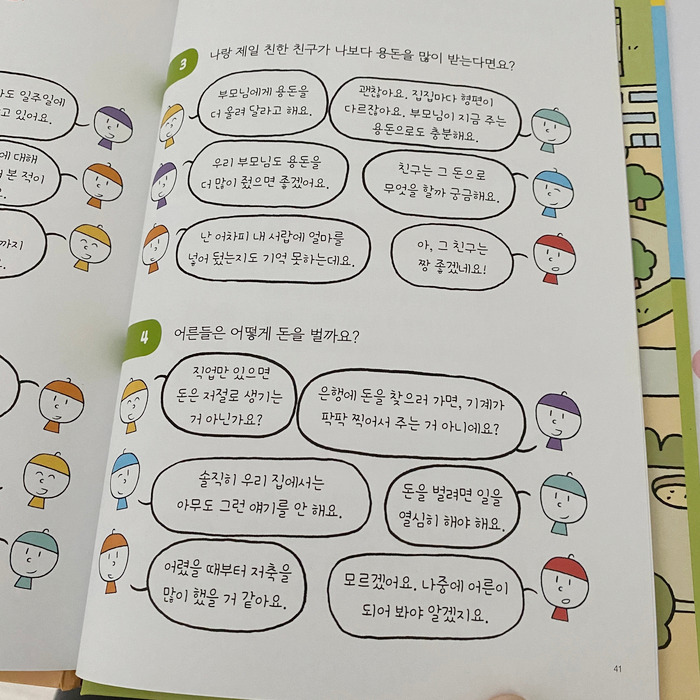 도 일주일에
고 있어요.
에 대해
본 적이
까지
3
나랑 제일 친한 친구가 나보다 용돈을 많이 받는다면요?
부모님에게 용돈을
더 올려 달라고 해요.
괜찮아요. 집집마다 형편이
다르잖아요. 부모님이 지금 주는
용돈으로도 충분해요.
우리 부모님도 용돈을
더 많이 줬으면 좋겠어요.
친구는 그 돈으로
무엇을 할까 궁금해요.
난 어차피 내 서랍에 얼마를
넣어 뒀는지도 기억 못하는데요.
아, 그 친구는
짱 좋겠네요!
4
어른들은 어떻게 돈을 벌까요?
직업만 있으면
돈은 저절로 생기는
거 아닌가요?
은행에 돈을 찾으러 가면, 기계가
팍팍 찍어서 주는 거 아니에요?
솔직히 우리 집에서는
아무도 그런 얘기를 안 해요.
돈을 벌려면 일을
열심히 해야 해요.
어렸을 때부터 저축을
많이 했을 거 같아요.
모르겠어요. 나중에 어른이
되어 봐야 알겠지요.
41